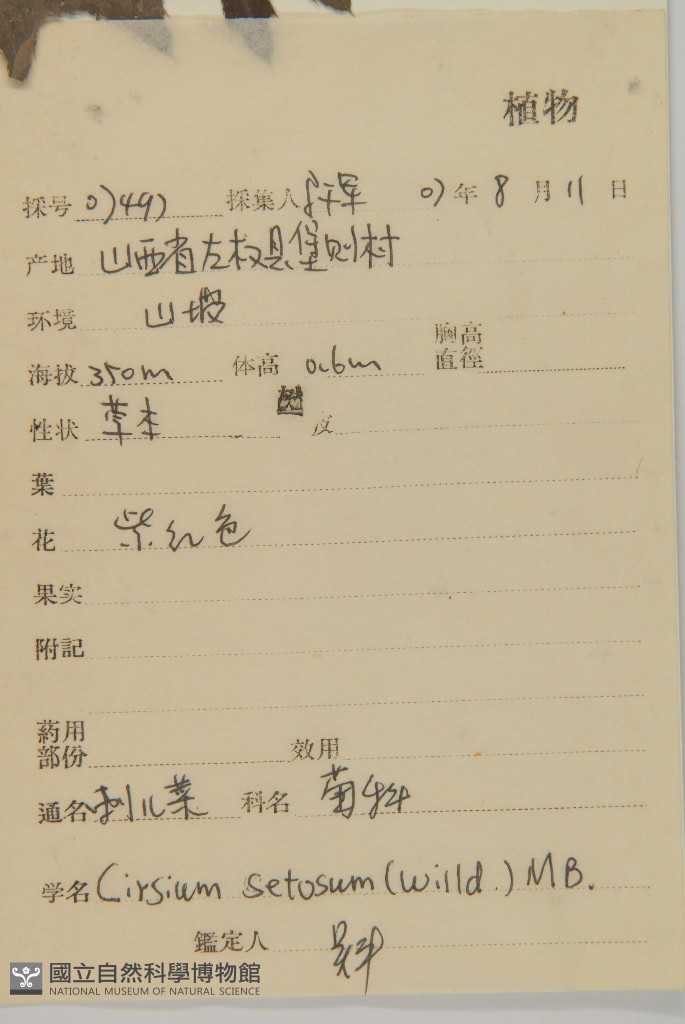 植物
採号 07497 採集人 07年 8月 11日
产地 山西省左权县堡则村
环境 山坡
海拔 350m 体高 0.6m 胸高直徑
性状 草本 皮
葉
花 紫红色
果实
附記
葯用部份 效用
通名 刺儿菜 科名 菊科
学名 Cirsium setosum (Willd.) MB.
鑑定人
國立自然科學博物館
NATIONAL MUSEUM OF NATURAL SCIENCE